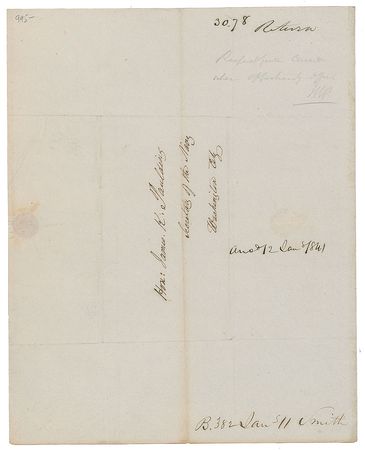 985-
3078 Return
Respectfully
when opportunity
Hon: James K. Paulding
Secretary of the Navy
Washington City
Ansd 12 Jany 1841
B. 382 Jany 11 Smith